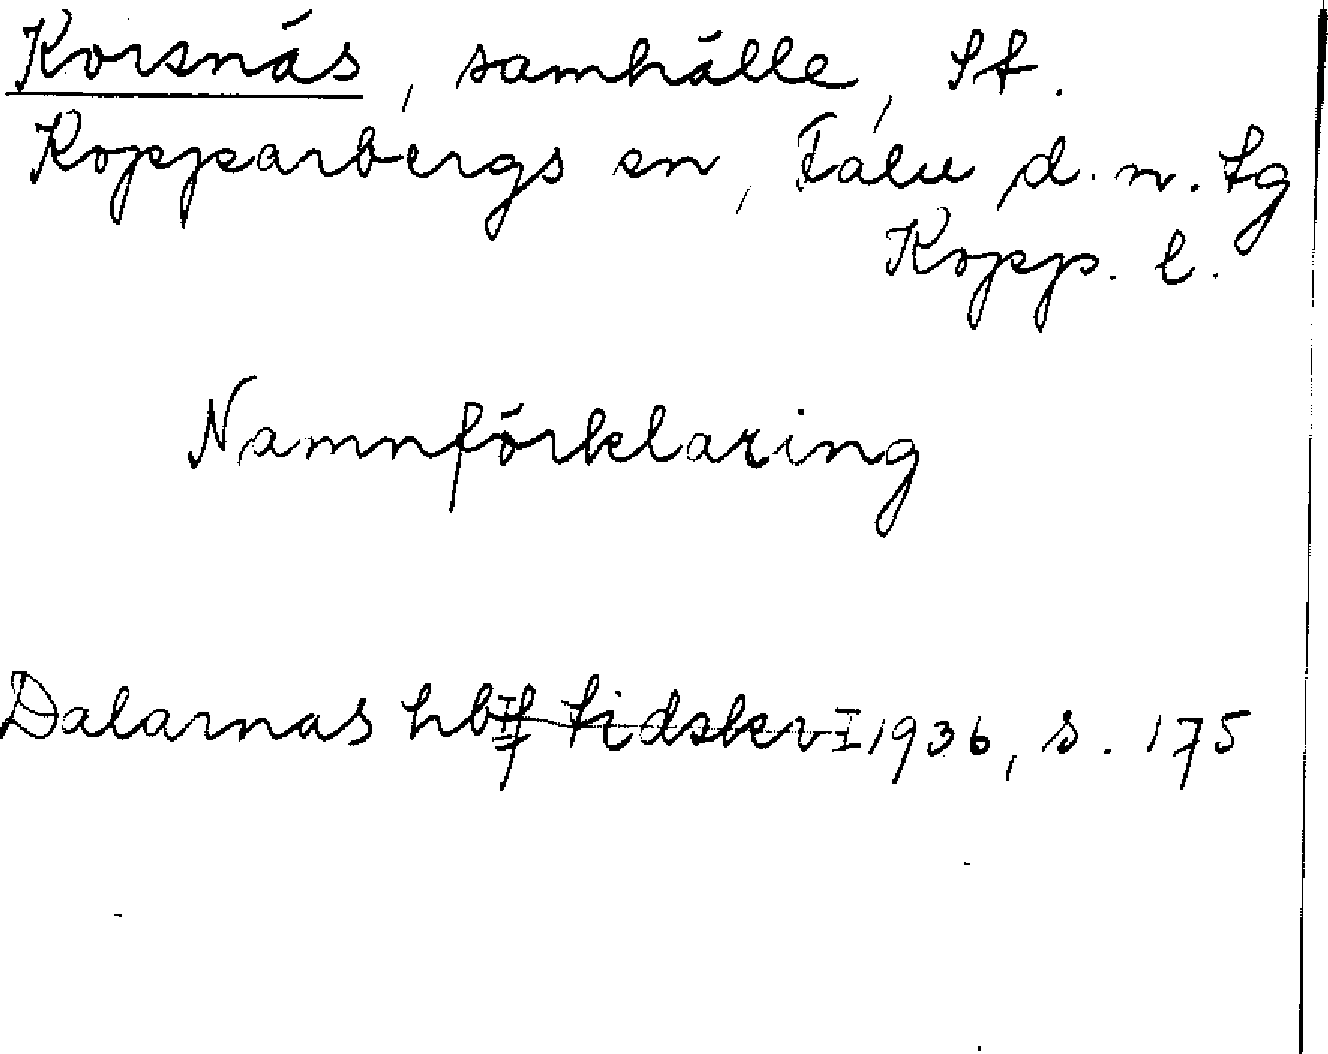 Korsnäs, samhälle, St.
Kopparbergs sn, Falu d. n. tg
Kopp. l.
Namnförklaring
Dalarnas hbf tidskr 1936, s. 175